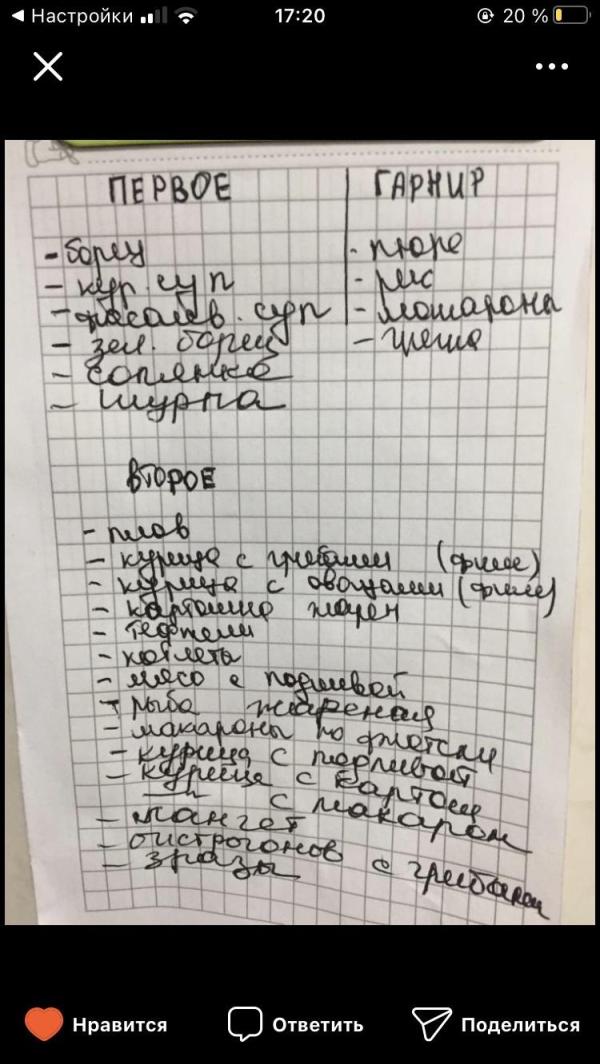 Настройки 17:20 20 %
ПЕРВОЕ
- борщ
- кур. суп
- фасолев. суп
- зел. борщ
- солянка
- шурпа
ГАРНИР
- пюре
- рис
- макароны
- греча
ВТОРОЕ
- плов
- курица с грибами (филе)
- курица с овощами (филе)
- картошка жарен
- тефтели
- котлеты
- мясо с подливой
- рыба жареная
- макароны по флотски
- курица с подливой
- курица с картош
—"— с макарон
- мангет
- бистрогонов с грибами
- зразы
Нравится Ответить Поделиться